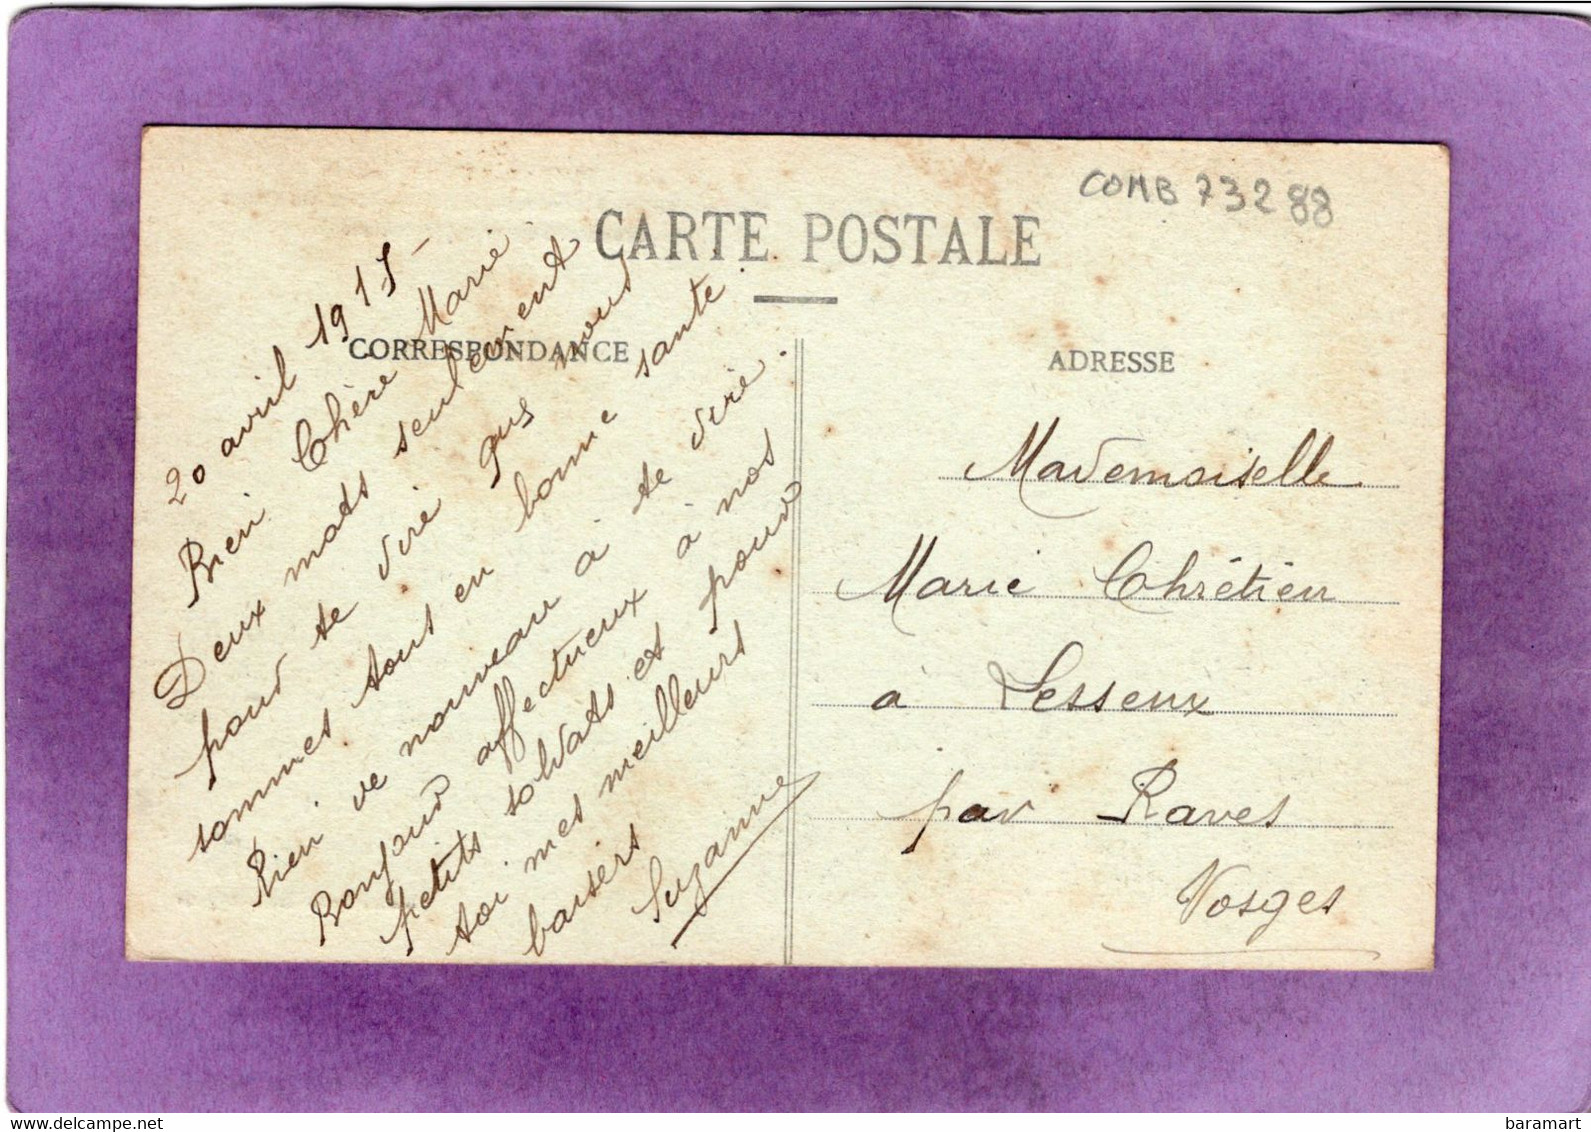 COMB 73288
CARTE POSTALE
CORRESPONDANCE
ADRESSE
20 avril 1915
Bien Chère Marie
Deux mots seulement
pour te dire que nous
sommes tous en bonne santé.
Rien de nouveau à te dire.
Bonjour affectueux à nos
petits soldats et pour
toi mes meilleurs
baisers
Suzanne
Mademoiselle
Marie Chrétien
à Lesseux
par Raves
Vosges
www.delcampe.net
baramart